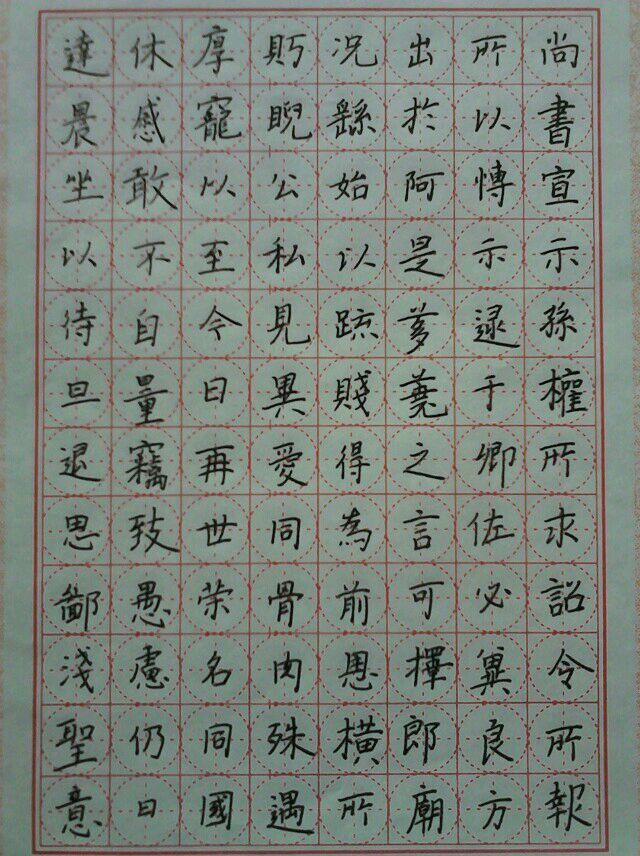 尚書宣示孫權所求詔令所報
所以愽示逮于卿佐必冀良方
出於阿是芻蕘之言可擇郎廟
况繇始以踈賤得為前恩橫所
眄睨公私見異愛同骨肉殊遇
厚寵以至今日再世荣名同國
休慼敢不自量竊致愚慮仍日
達晨坐以待旦退思鄙淺聖意